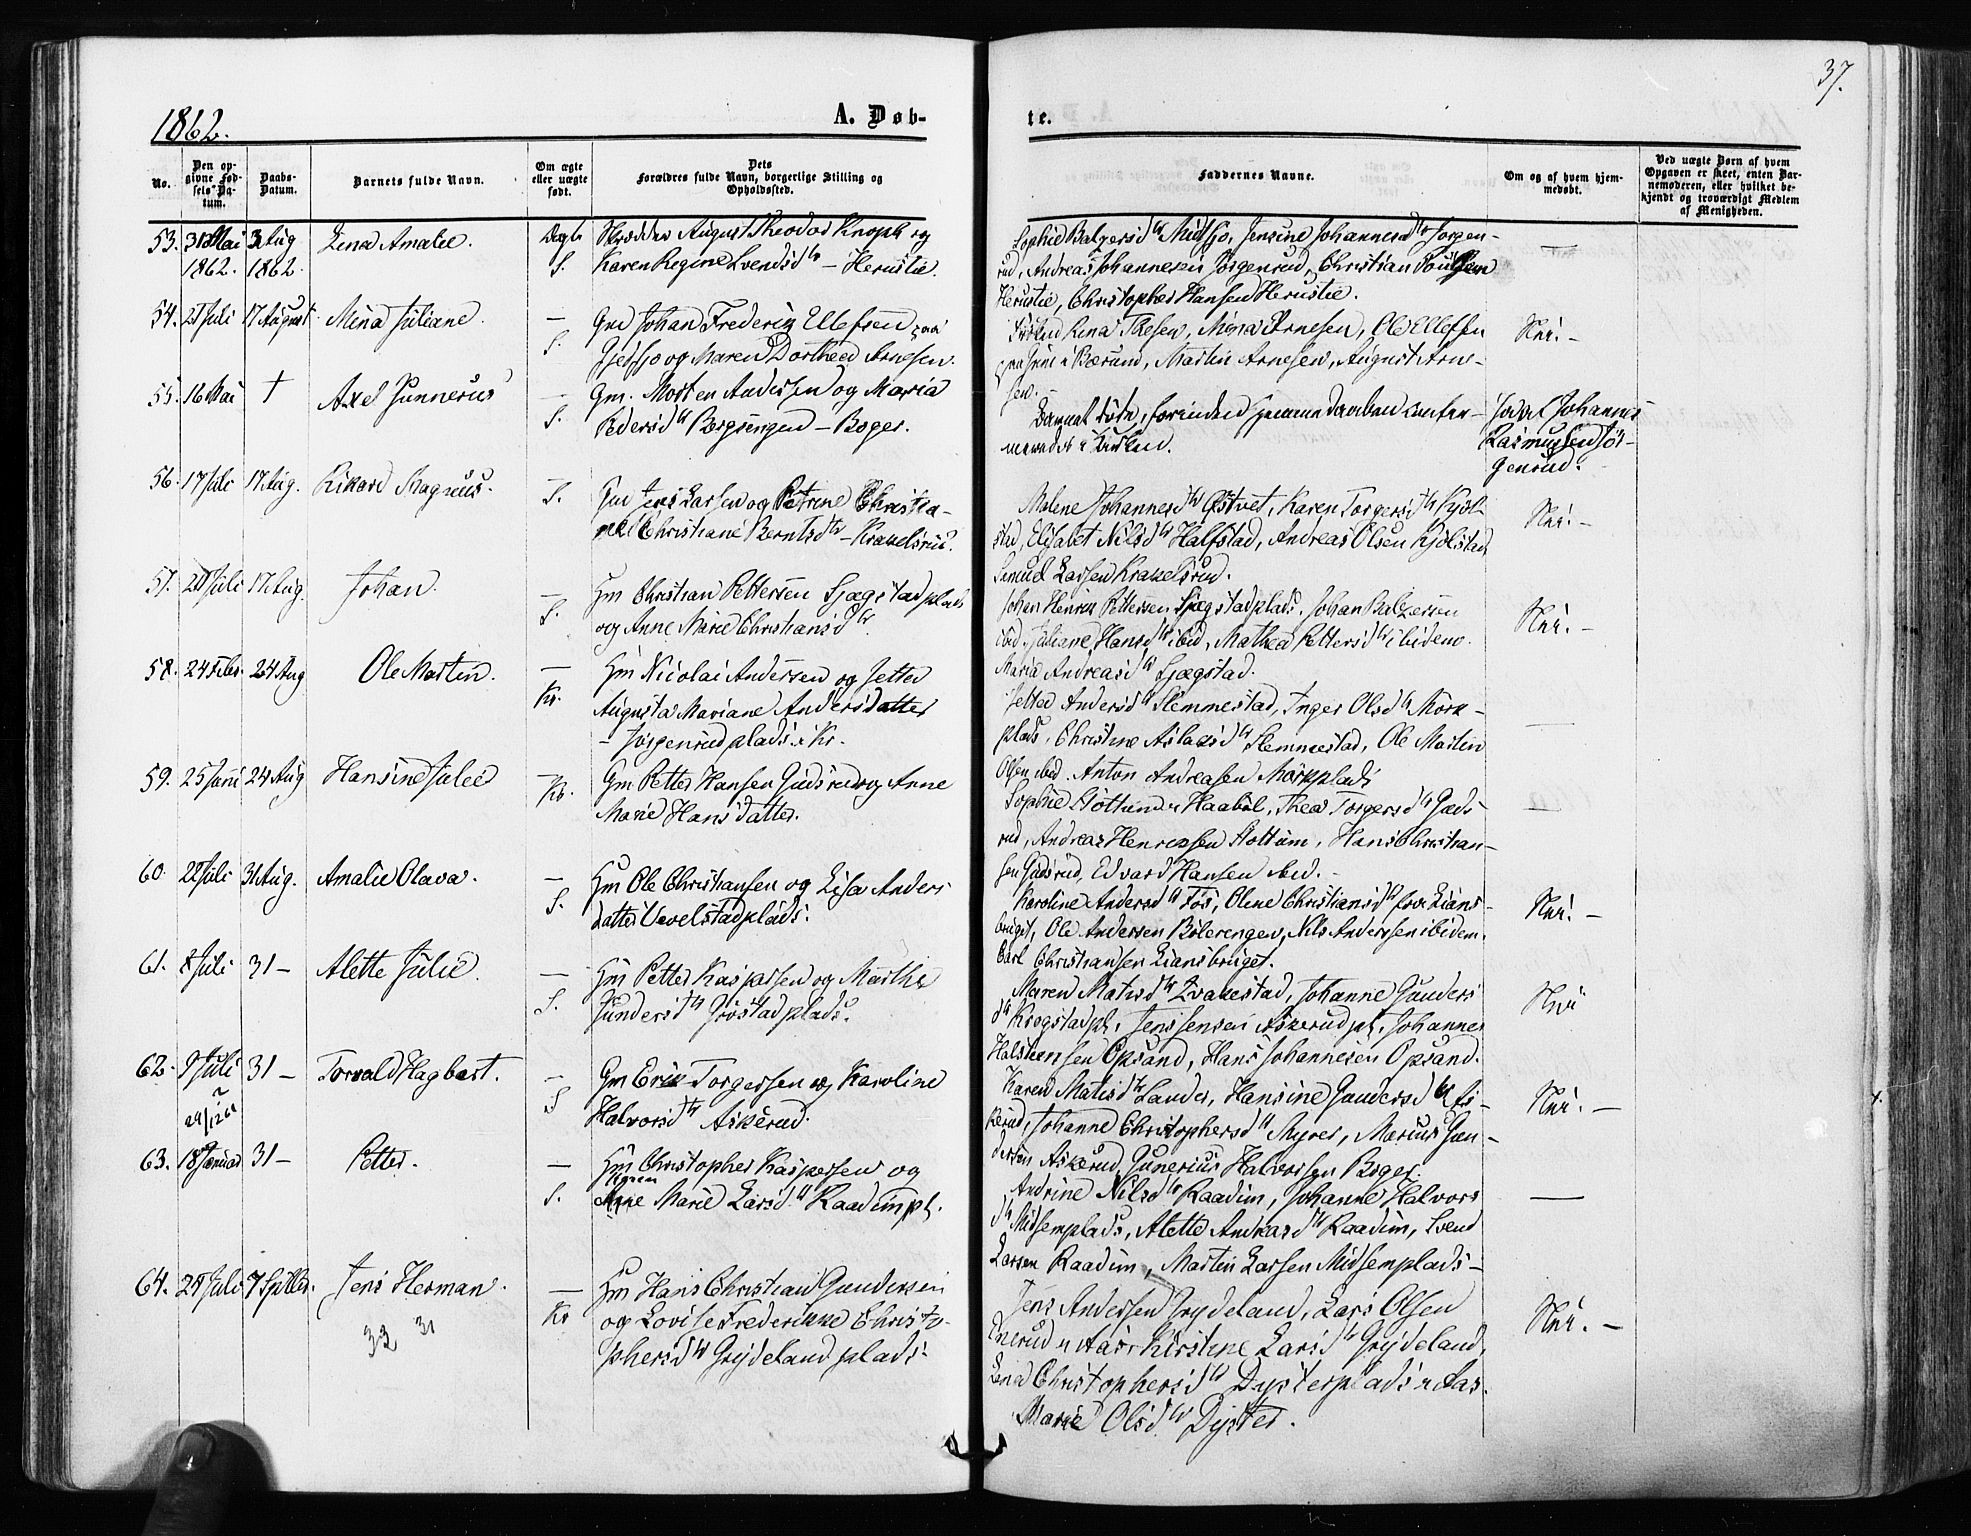 37.
1862.
A. Døb-
te.
No.
Den op-
givne Fød-
sels-Da-
tum.
Daabs-
Datum.
Barnets fulde Navn.
Om ægte
eller uægte
født.
Dets
Forældres fulde Navn, borgerlige Stilling og
Opholdssted.
Faddernes Navne.
Om og af hvem hjem-
medøbt.
Ved uægte Børn af hvem
Opgaven er skeet, enten Bar-
nemoderen, eller hvilket be-
kjendt og troværdigt Medlem
af Menigheden.
53. 31 Mai 1862. 3 Aug 1862. Lina Amalie.
Skrædder August Theodor Knoph og
Karen Regine Svendsdtr – Herustie.
Sophie Balzersdtr Midsjo, Jensine Johannesdtr Jørgen-
rud, Andreas Johannesen Jørgenrud, Christian
Herustie, Christopher Hansen Herustie.
54. 21 Juli 17 August Mina Juliane.
– S.
Gm Johan Frederik Ellefsen paa
Gjedsjo og Maren Dorthea Arnesen.
Lina Thesen, Mina Arnesen, Ole Ellefsen
i Bærum, Martin Arnesen, August Arne-
sen.
55. 16 Mai † Axel Gunnerus
– S.
Gm. Morten Andersen og Maria
Pedersdtr Bergsengen – Boger.
Barnet døde, forinden Hjemmedaaben confir-
meredes i Kirken.
Johannes
Rasmussen Jør-
genrud.
56. 17 Juli 17 Aug. Rikard Magnus.
– S.
Gm Jens Larsen og Petrine Christia-
Christiane Berntsdtr – Krakelsrud.
Malene Johannesdtr Østvet, Karen Torgersdtr Kjøl-
stad, Elisabet Nilsdtr Halfstad, Andreas Olsen Kjølstad
Larsen Krakelsrud.
57. 20 Juli 17 Aug. Johan.
– S.
Hm Christian Pettersen Sjægstadplads
og Anne Marie Christiansdtr.
Johan Henrik Pettersen Sjægstadplads, Johan Balzersen
ibid, Juliane Hansdtr ibid, Mathea Pettersdtr ibidem.
Maria Andreasdtr Sjægstad.
58. 24 Febr. 24 Aug Ole Martin.
– Kr.
Hm Nicolai Andersen og Jette
Augusta Mariane Andersdatter
– Jørgenrudplads i Kr.
Jette Andersdtr Slemmestad, Inger Olsdtr Mørk-
plads, Christine Aslaksdtr Slemmestad, Ole Martin
Olsen ibid. Anton Andreasen Mørkplads
59. 25 Juni 24 Aug Hansine Julie
– Kr.
Gm Petter Hansen Gudsrud og Anne
Marie Hansdatter.
Sophie Haabøl, Thea Torgersdtr Guds-
rud, Andreas Henriksen Hottum, Hans Christian-
sen Gudsrud, Edvard Hansen ibid.
60. 22 Juli 31 Aug. Amalie Olava.
– S.
Hm Ole Christiansen og Lisa Anders
datter Vevelstadplads.
Karoline Andersdtr Fos, Olene Christiansdtr Lians-
bruget, Ole Andersen Bølerengen, Nils Andersen ibidem.
Carl Christiansen Liansbruget.
61. 8 Juli 31 – Alette Julie.
– S.
Hm Petter Kaspersen og Marthe
Gundersdtr Grøstadplads.
Maren Matisdtr Kvakestad, Johanne Gunders
dtr Krogstadpl, Jens Jensen Askerudpl, Johannes
Halstensen Opsand, Hans Johannesen Opsand.
62. 9 Juli 31 – Torvald Hagbart.
29/12 61
– S
Gm Erik Torgersen og Karoline
Halvorsdtr Askerud.
Karen Matisdtr Lander, Hansine Gundersdtr As-
kerud, Johanne Christophersdtr Myrer, Marius Gun-
dersen Askerud, Gunerius Halvorsen Boger.
63. 18 Januar 31 – Petter.
– S.
Hm Christopher Kaspersen og
Karen
Anne Marie Larsdtr Raadimpl.
Andrine Nilsdtr Raadim, Johanne Halvors
dtr Midsemplads, Alette Andreasdtr Raadim, Svend
Larsen Raadim, Martin Larsen Midsemplads –
64. 29 Juli 7 Septbr. Jens Herman.
– Kr
Hm Hans Christian Gundersen
og Lovise Frederikke Christo-
phersdtr Grydeland plads.
Jens Andersen Grydeland, Lars Olsen
Enerud i Aas, Kirstine Larsdtr Grydeland,
Lina Christophersdtr Dysterplads i Aas.
Marie Olsdtr Dyster.
32 31